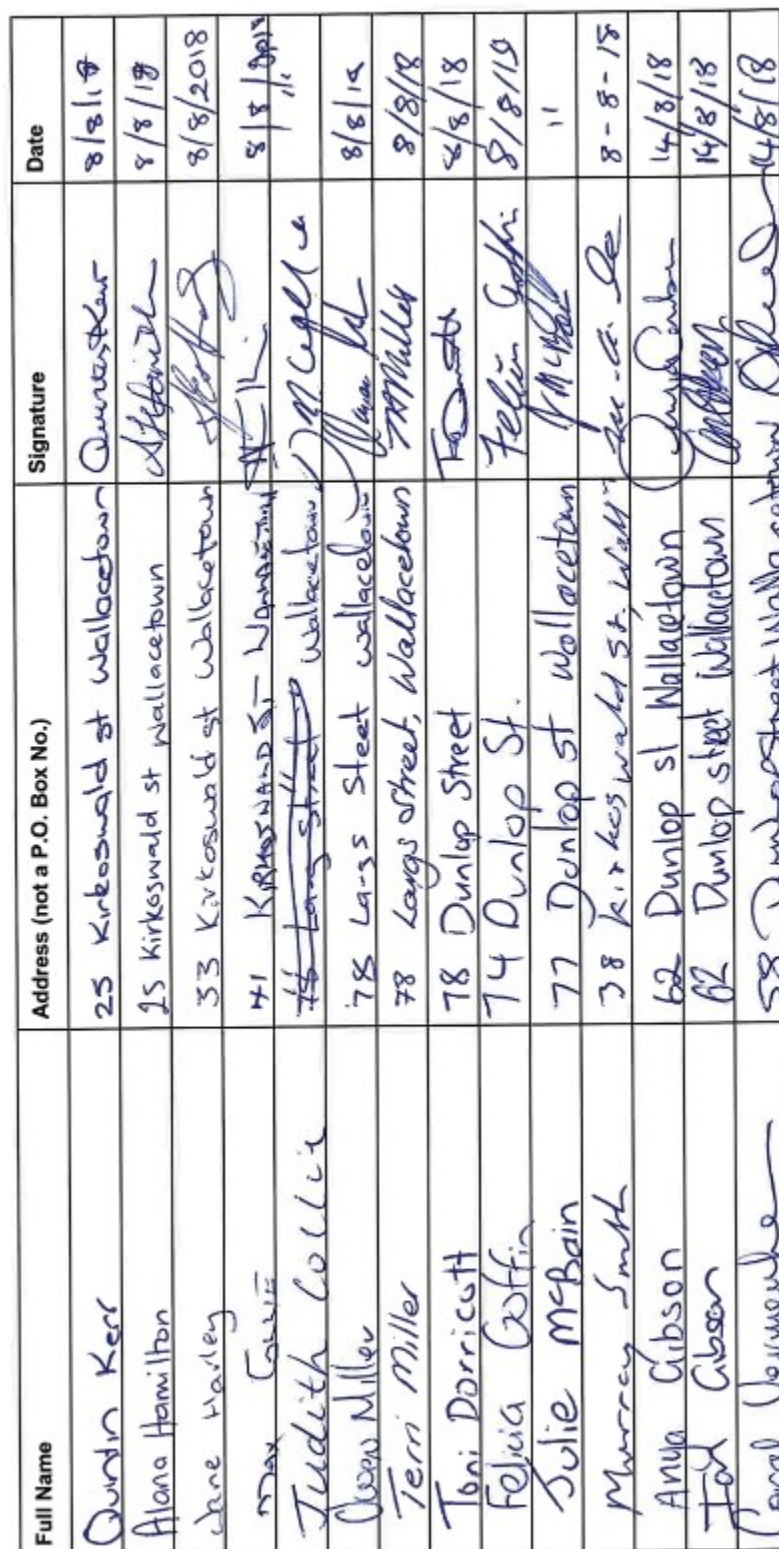 Full Name Address (not a P.O. Box No.) Signature Date
Quintin Kerr 25 Kirkoswald st Wallacetown 8/8/18
Alana Hamilton 25 Kirkoswald st Wallacetown 8/8/18
Jane Harley 33 Kirkoswald st Wallacetown 8/8/2018
Max Collie 41 8/8/
Judith Collie Wallacetown "
Owen Miller 78 Largs Street Wallacetown 8/8/18
Terri Miller 78 Largs Street, Wallacetown TMiller 8/8/18
Toni Dorricott 78 Dunlop Street 8/8/18
Felicia Goffin 74 Dunlop St. Felicia Goffin
Julie McBain 77 Dunlop St Wallacetown "
Murray Smith 38 Kirkoswald St, 8-8-18
Anya Gibson 62 Dunlop st Wallacetown 14/8/18
Gibson 62 Dunlop street Wallacetown 14/8/18
Carol 58 Dunlop Street Wallacetown 14/8/18